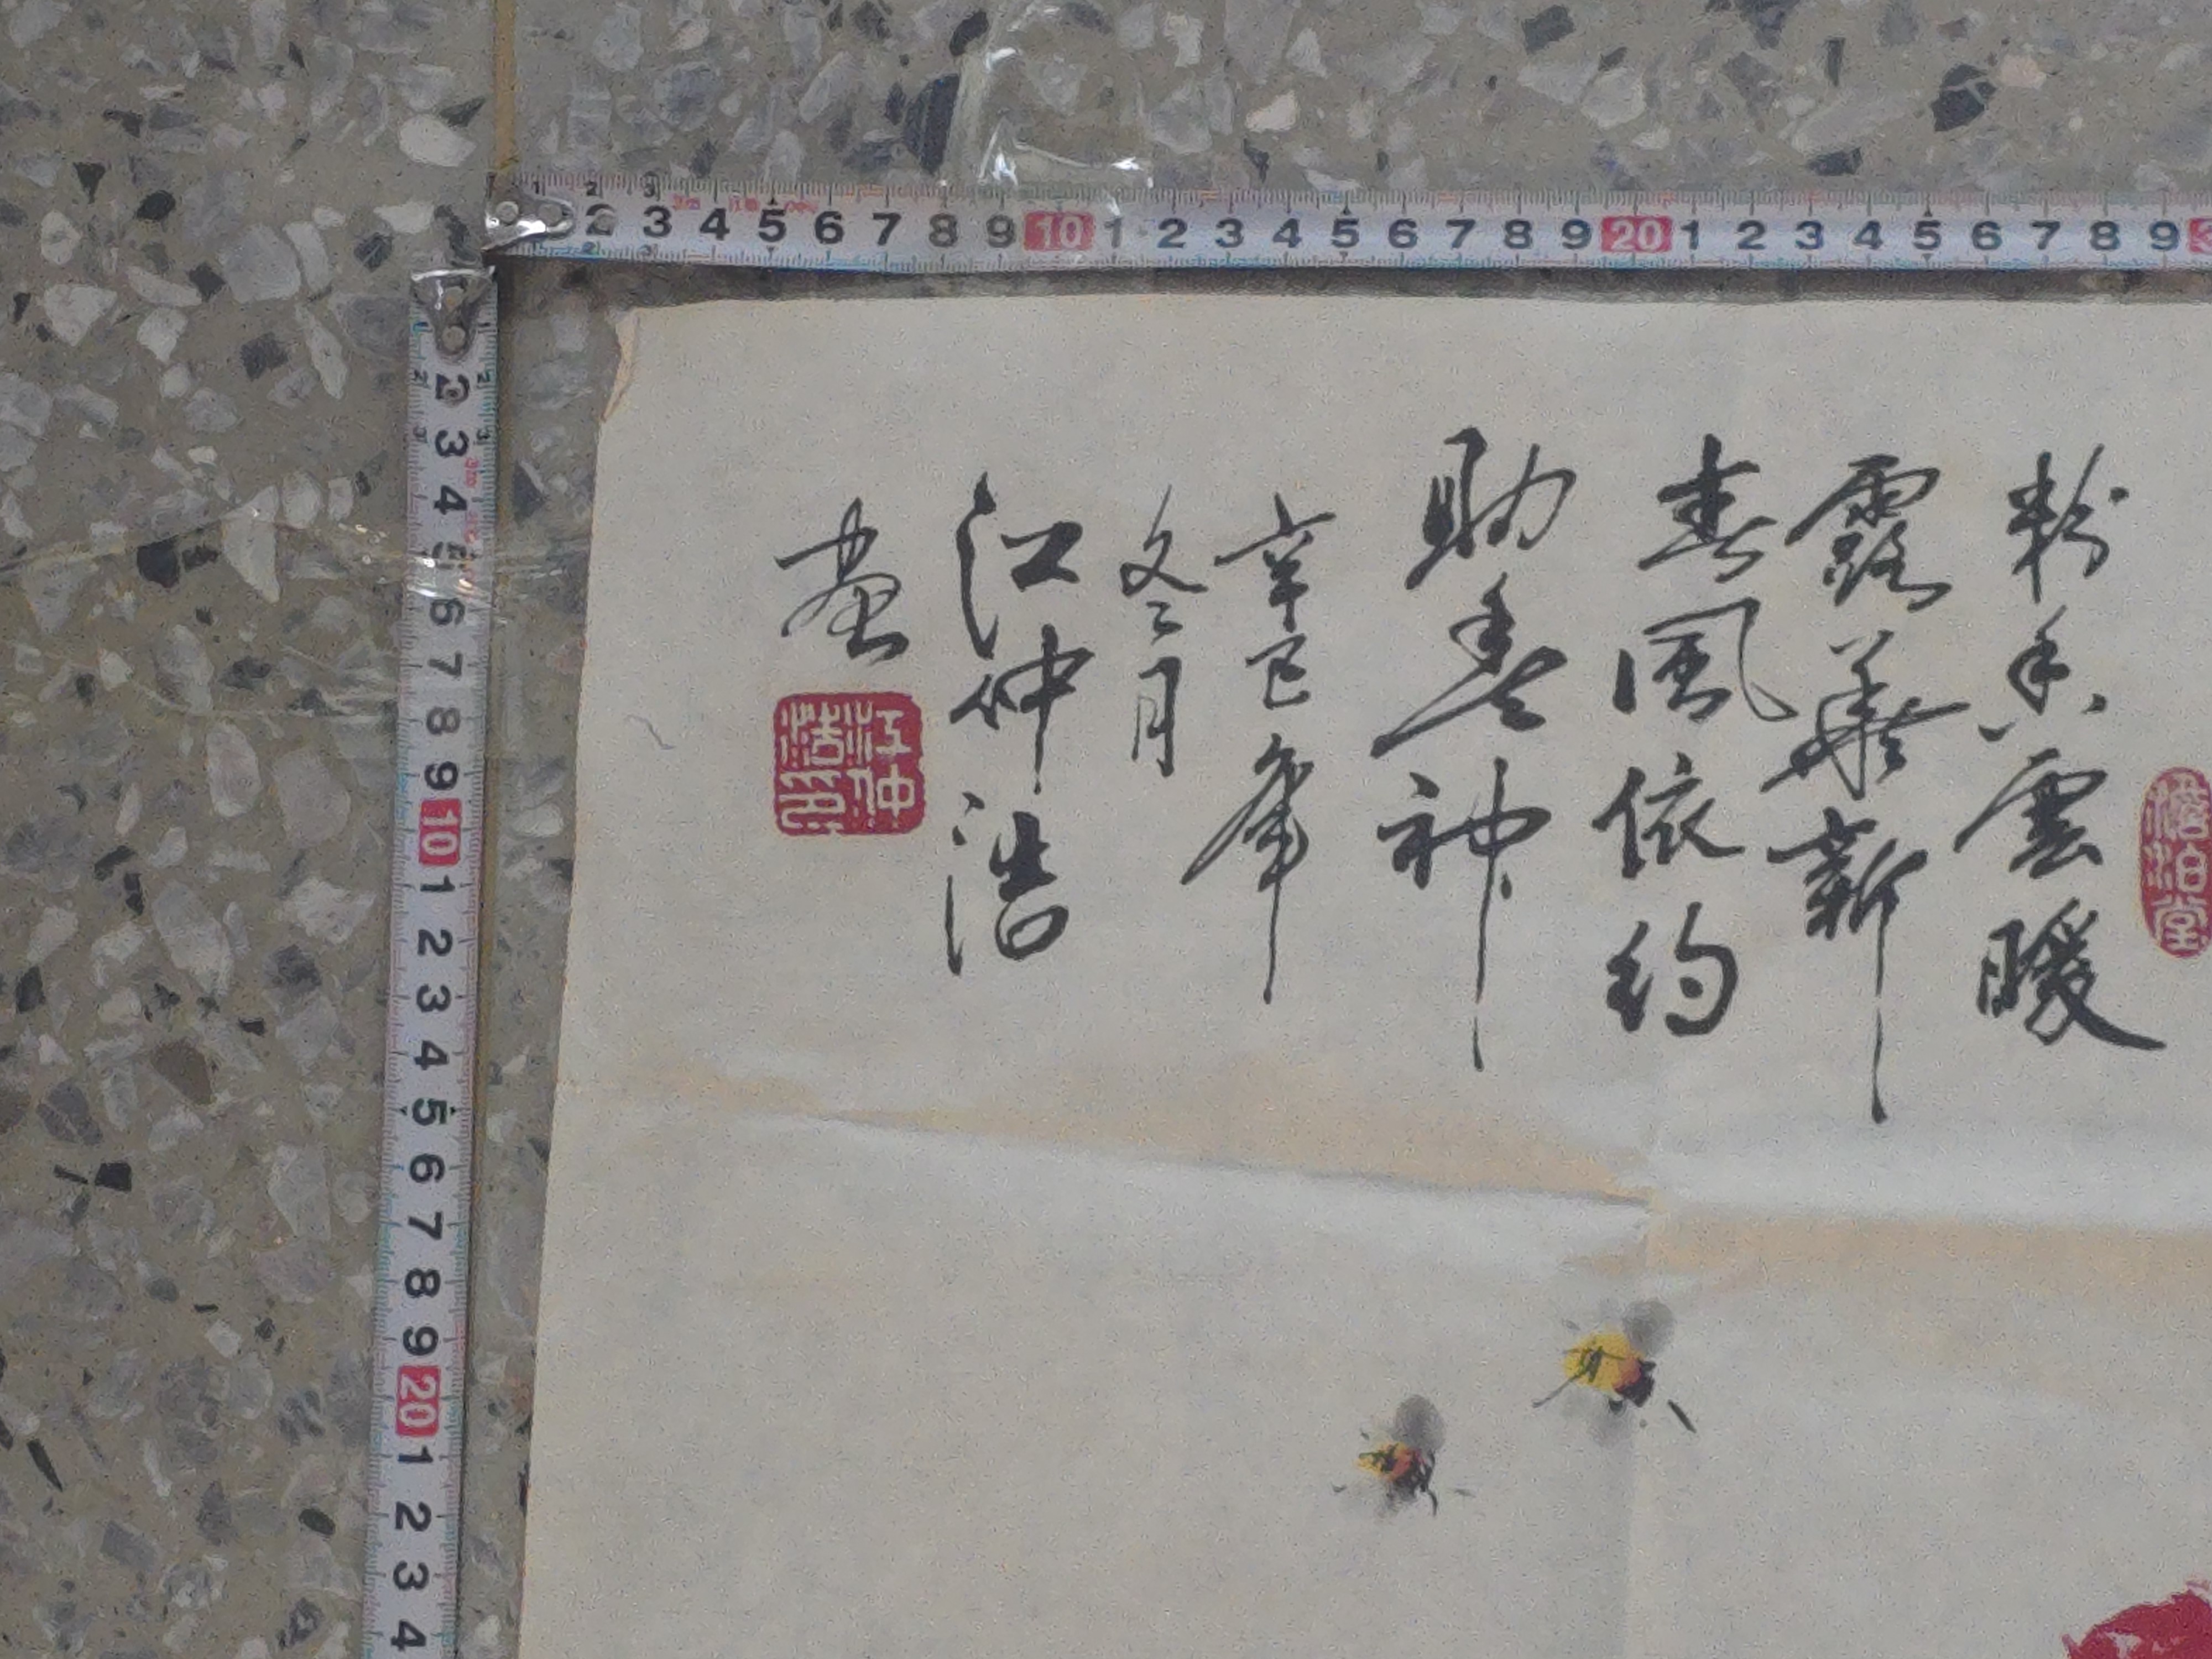 2 3 4 5 6 7 8 9 10 1 2 3 4 5 6 7 8 9 20 1 2 3 4 5 6 7 8 9
2 3 4 5 6 7 8 9 10 1 2 3 4 5 6 7 8 9 20 1 2 3 4
澹泊堂
粉香雲暖
露華新
春風依約
助神
辛巳年
冬月
江仲浩
畫
江仲浩印